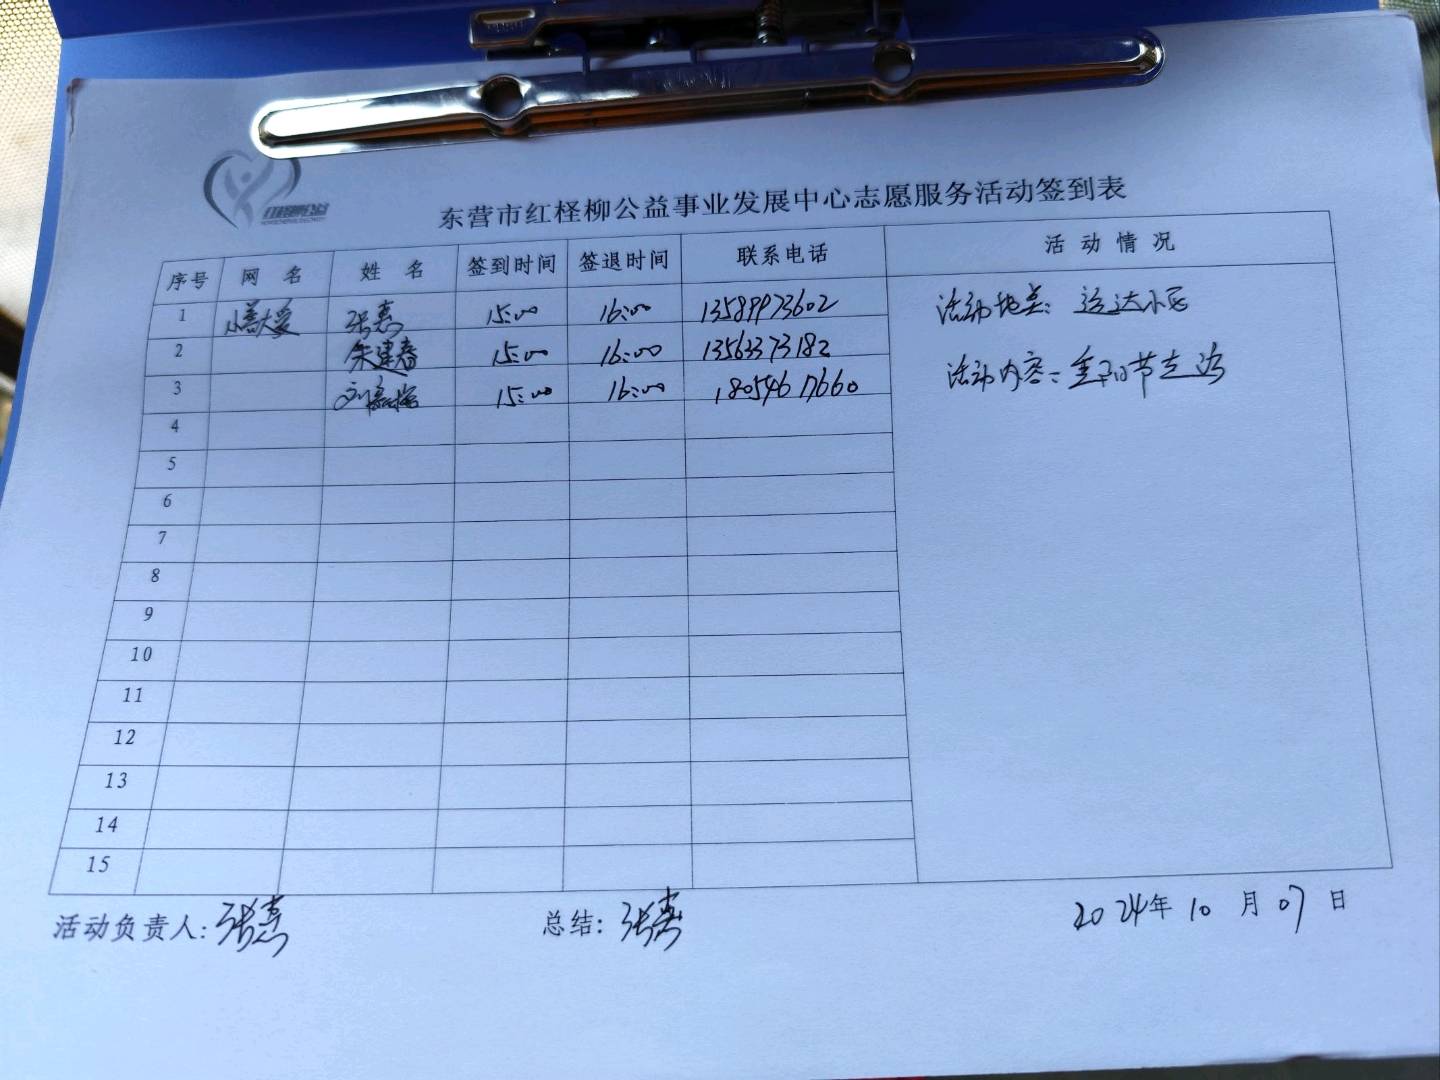 东营市红柽柳公益事业发展中心志愿服务活动签到表
序号 网 名 姓 名 签到时间 签退时间 联系电话 活 动 情 况
1 小善大爱 张惠 15:00 16:00 13589973602 活动地点:运达小区
2 朱建春 15:00 16:00 13563373182
3 15:00 16:00 18054617660 活动内容:重阳节走访
4
5
6
7
8
9
10
11
12
13
14
15
活动负责人:张惠 总结:张惠 2024年 10 月 07 日